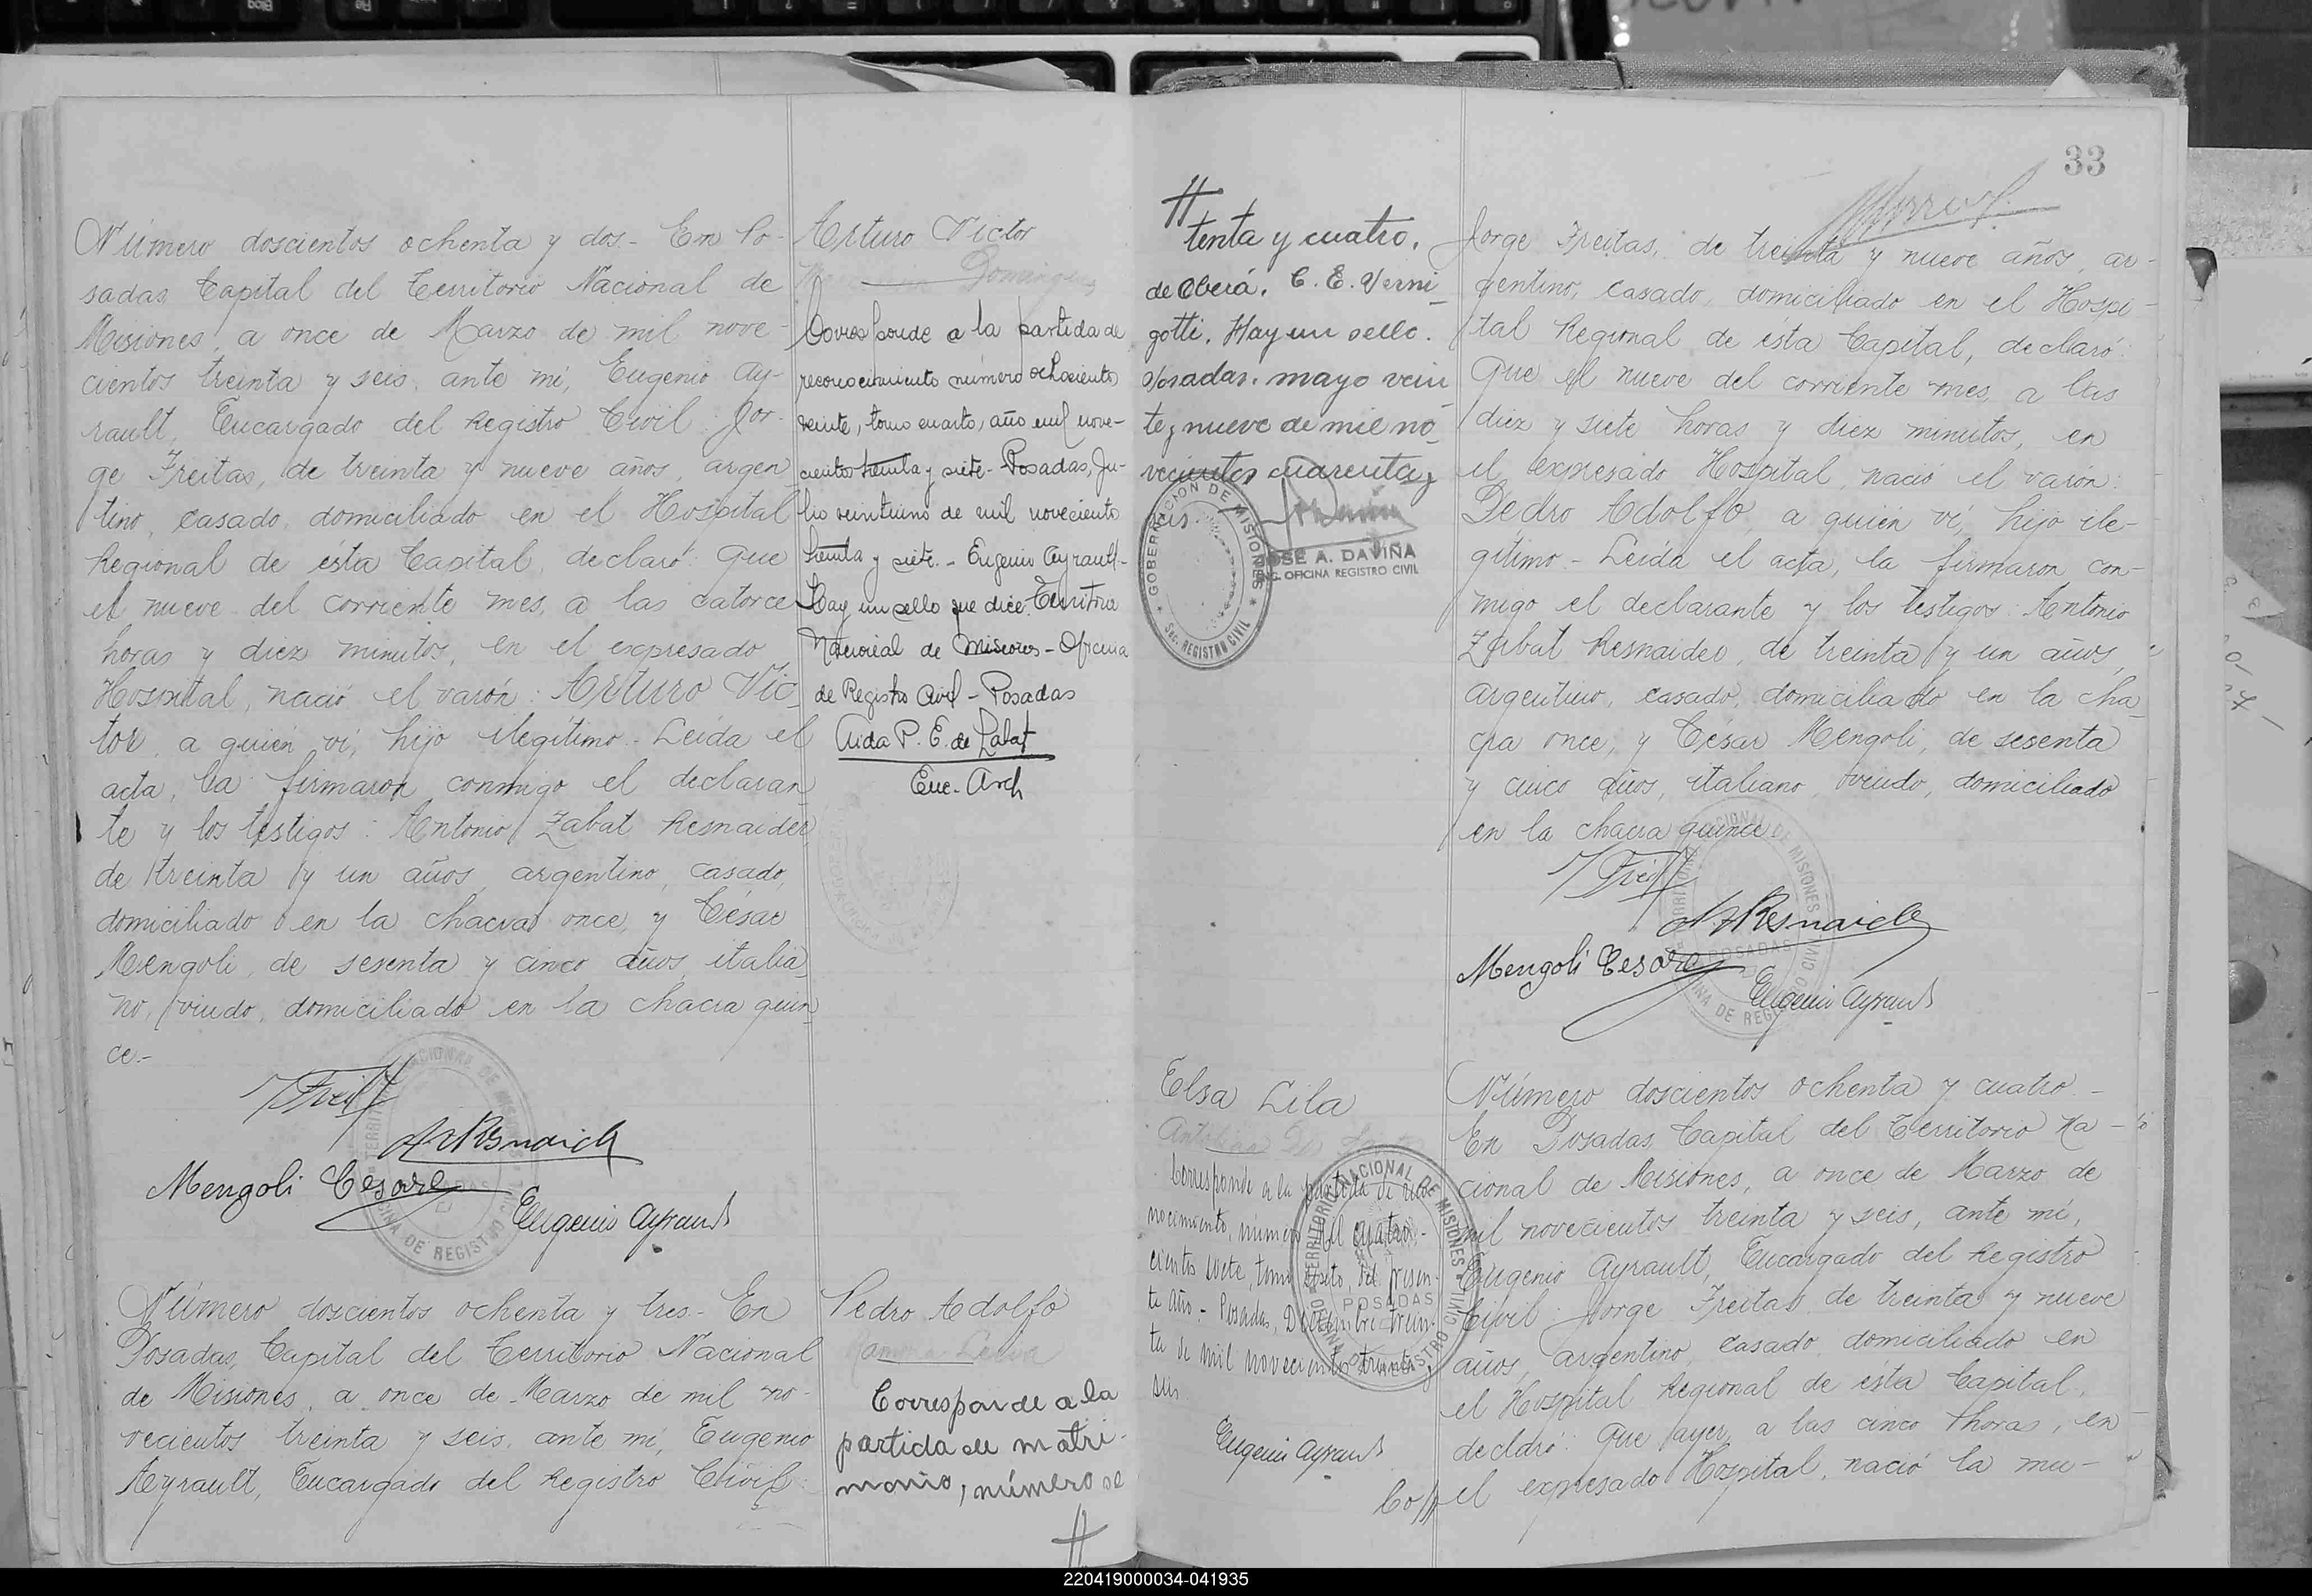 Número doscientos ochenta y dos.- En Po-
sadas, Capital del Territorio Nacional de
Misiones, a once de Marzo de mil nove-
cientos treinta y seis, ante mí, Eugenio Ay-
rault, Encargado del Registro Civil: Jor-
ge Freitas, de treinta y nueve años, argen
tino, casado, domiciliado en el Hospital
Regional de ésta Capital, declaró: Que
el nueve del corriente mes, a las catorce
horas y diez minutos, en el expresado
Hospital, nació el varón: Arturo Víc
tor, a quién ví, hijo ilegítimo.- Leída el
acta, la firmaron conmigo el declaran
te y los testigos: Antonio Zabat Resnaider,
de treinta y un años, argentino, casado,
domiciliado en la chacra once, y César
Mengoli, de sesenta y cinco años, italia
no, viudo, domiciliado en la chacra quin
ce.-
Mengoli Cesare
Eugenio Ayrault
Arturo Victor
Dominguez
Corresponde a la partida de
reconocimiento número ochociento
veinte, tomo cuarto, año mil nove-
cientos treinta y siete- Posadas, Ju-
lio veintiuno de mil noveciento
treinta y siete.- Eugenio Ayrault-
Hay un sello que dice: Territorio
Nacional de Misiones- Oficina
de Registro Civil- Posadas
Aida P. E. de Zabat
Enc. Arch
Número doscientos ochenta y tres.- En
Posadas, Capital del Territorio Nacional
de Misiones, a once de Marzo de mil no-
vecientos treinta y seis, ante mí, Eugenio
Ayrault, Encargado del Registro Civil:
Pedro Adolfo
Ramona Leiva
Corresponde a la
partida de matri-
monio, número se
//
33
//
tenta y cuatro,
de Oberá. C. E. Verni
gotti. Hay un sello.
Posadas, mayo vein
te y nueve de mil no
vecientos cuarenta y
seis.
GOBERNACION DE MISIONES
Sec. REGISTRO CIVIL
JOSE A. DAVIÑA
ENC. OFICINA REGISTRO CIVIL
Jorge Freitas, de treinta y nueve años, ar-
gentino, casado, domiciliado en el Hospi-
tal Regional de ésta Capital, declaró:
Que el nueve del corriente mes, a las
diez y siete horas y diez minutos, en
el expresado Hospital, nació el varón:
Pedro Adolfo, a quién ví, hijo ile-
gítimo.- Leída el acta, la firmaron con-
migo el declarante y los testigos: Antonio
Zabat Resnaider, de treinta y un años,
argentino, casado, domiciliado en la cha
cra once, y César Mengoli, de sesenta
y cinco años, italiano, viudo, domiciliado
en la chacra quince
Mengoli Cesare
Eugenio Ayrault
Elsa Lila
Corresponde a la partida de reco-
nocimiento, número mil cuatro-
cientos siete, tomo sexto, del presen-
te año.- Posadas, Diciembre trein-
ta de mil novecientos treinta y
seis.
Eugenio Ayrault
TERRITORIO NACIONAL DE MISIONES
POSADAS
OFICINA DE REGISTRO CIVIL
Número doscientos ochenta y cuatro.-
En Posadas, Capital del Territorio Na-
cional de Misiones, a once de Marzo de
mil novecientos treinta y seis, ante mí,
Eugenio Ayrault, Encargado del Registro
Civil: Jorge Freitas, de treinta y nueve
años, argentino, casado, domiciliado en
el Hospital Regional de ésta Capital,
declaró: Que ayer, a las cinco horas, en
el expresado Hospital, nació la mu-
220419000034-041935